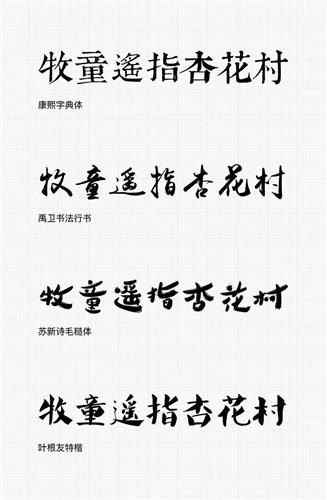 牧童遙指杏花村
康熙字典体
牧童遥指杏花村
禹卫书法行书
牧童遥指杏花村
苏新诗毛糙体
牧童遥指杏花村
叶根友特楷